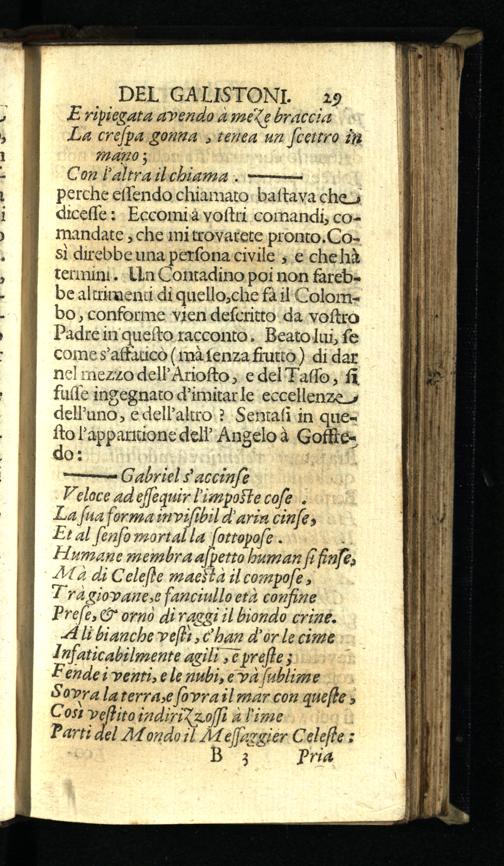 DEL GALISTONI. 29
E ripiegata avendo à meze braccia
La creſpa gonna, tenea un ſcettro in
mano;
Con l'altra il chiama. ———
perche eſſendo chiamato baſtava che
diceſſe: Eccomi à voſtri comandi, co-
mandate, che mi trovarete pronto. Co-
sì direbbe una perſona civile, e che hà
termini. Un Contadino poi non fareb-
be altrimenti di quello, che fà il Colom-
bo, conforme vien deſcritto da voſtro
Padre in queſto racconto. Beato lui, ſe
come s'affaticò (mà ſenza frutto) di dar
nel mezzo dell'Arioſto, e del Taſſo, ſi
fuſſe ingegnato d'imitar le eccellenze
dell'uno, e dell'altro? Sentaſi in que-
ſto l'apparitione dell' Angelo à Goffre-
do:
——— Gabriel s'accinſe
Veloce ad eſſequir l'impoſte coſe.
La ſua forma inviſibil d'aria cinſe,
Et al ſenſo mortal la ſottopoſe.
Humane membra aſpetto human ſi finſe,
Mà di Celeſte maeſtà il compoſe,
Trà giovane, e fanciullo età confine
Preſe, & ornò di raggi il biondo crine.
Ali bianche veſtì, c'han d'or le cime
Infaticabilmente agili, e preſte;
Fende i venti, e le nubi, e và ſublime
Sovra la terra, e ſovra il mar con queſte,
Così veſtito indirizzoſſi à l'ime
Parti del Mondo il Meſſaggier Celeſte:
B 3 Pria